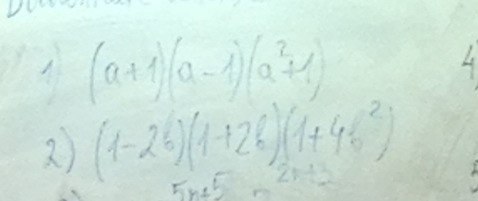 1) (a+1)(a-1)(a²+1)
4)
2) (1-2b)(1+2b)(1+4b²)
5n+5